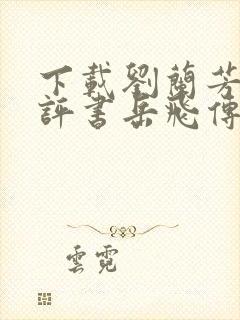 下載劉蘭芳
評書岳飛傳
雲霓